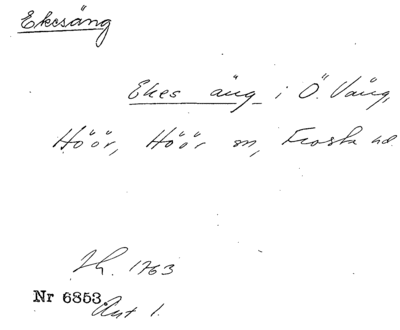 Ekesäng
Ekes äng i Ö. Vång,
Höör, Höör sn, Frosta hd
Lh. 1763
Nr 6853.
Avt 1.